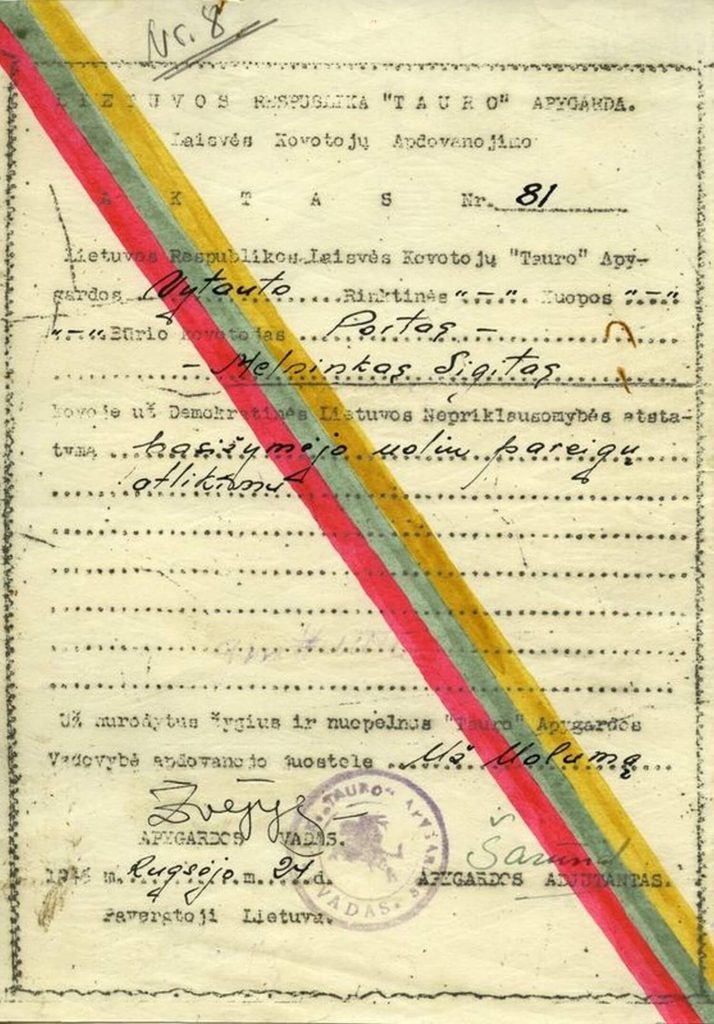 Nr. 8
LIETUVOS RESPUBLIKA "TAURO" APYGARDA.
Laisvės Kovotojų Apdovanojimo
AKTAS Nr. 81
Lietuvos Respublikos Laisvės Kovotojų "Tauro" Apy-
gardos Vytauto Rinktinės "-" Kuopos "-"
"-" Būrio kovotojas Portas -
- Melninkas Sigitas
kovoje už Demokratinės Lietuvos Nepriklausomybės atsta-
tymą pasižymėjo uoliu pareigų
atlikimu
Už nurodytus žygius ir nuopelnus "Tauro" Apygardos
Vadovybė apdovanojo juostele Už Uolumą
Žvejys -
"TAURO" APYGARDOS VADAS.
APYGARDOS VADAS.
Šarūnas
m. Rugsėjo m. 24 d. APYGARDOS ADJUTANTAS.
Pavergtoji Lietuva.